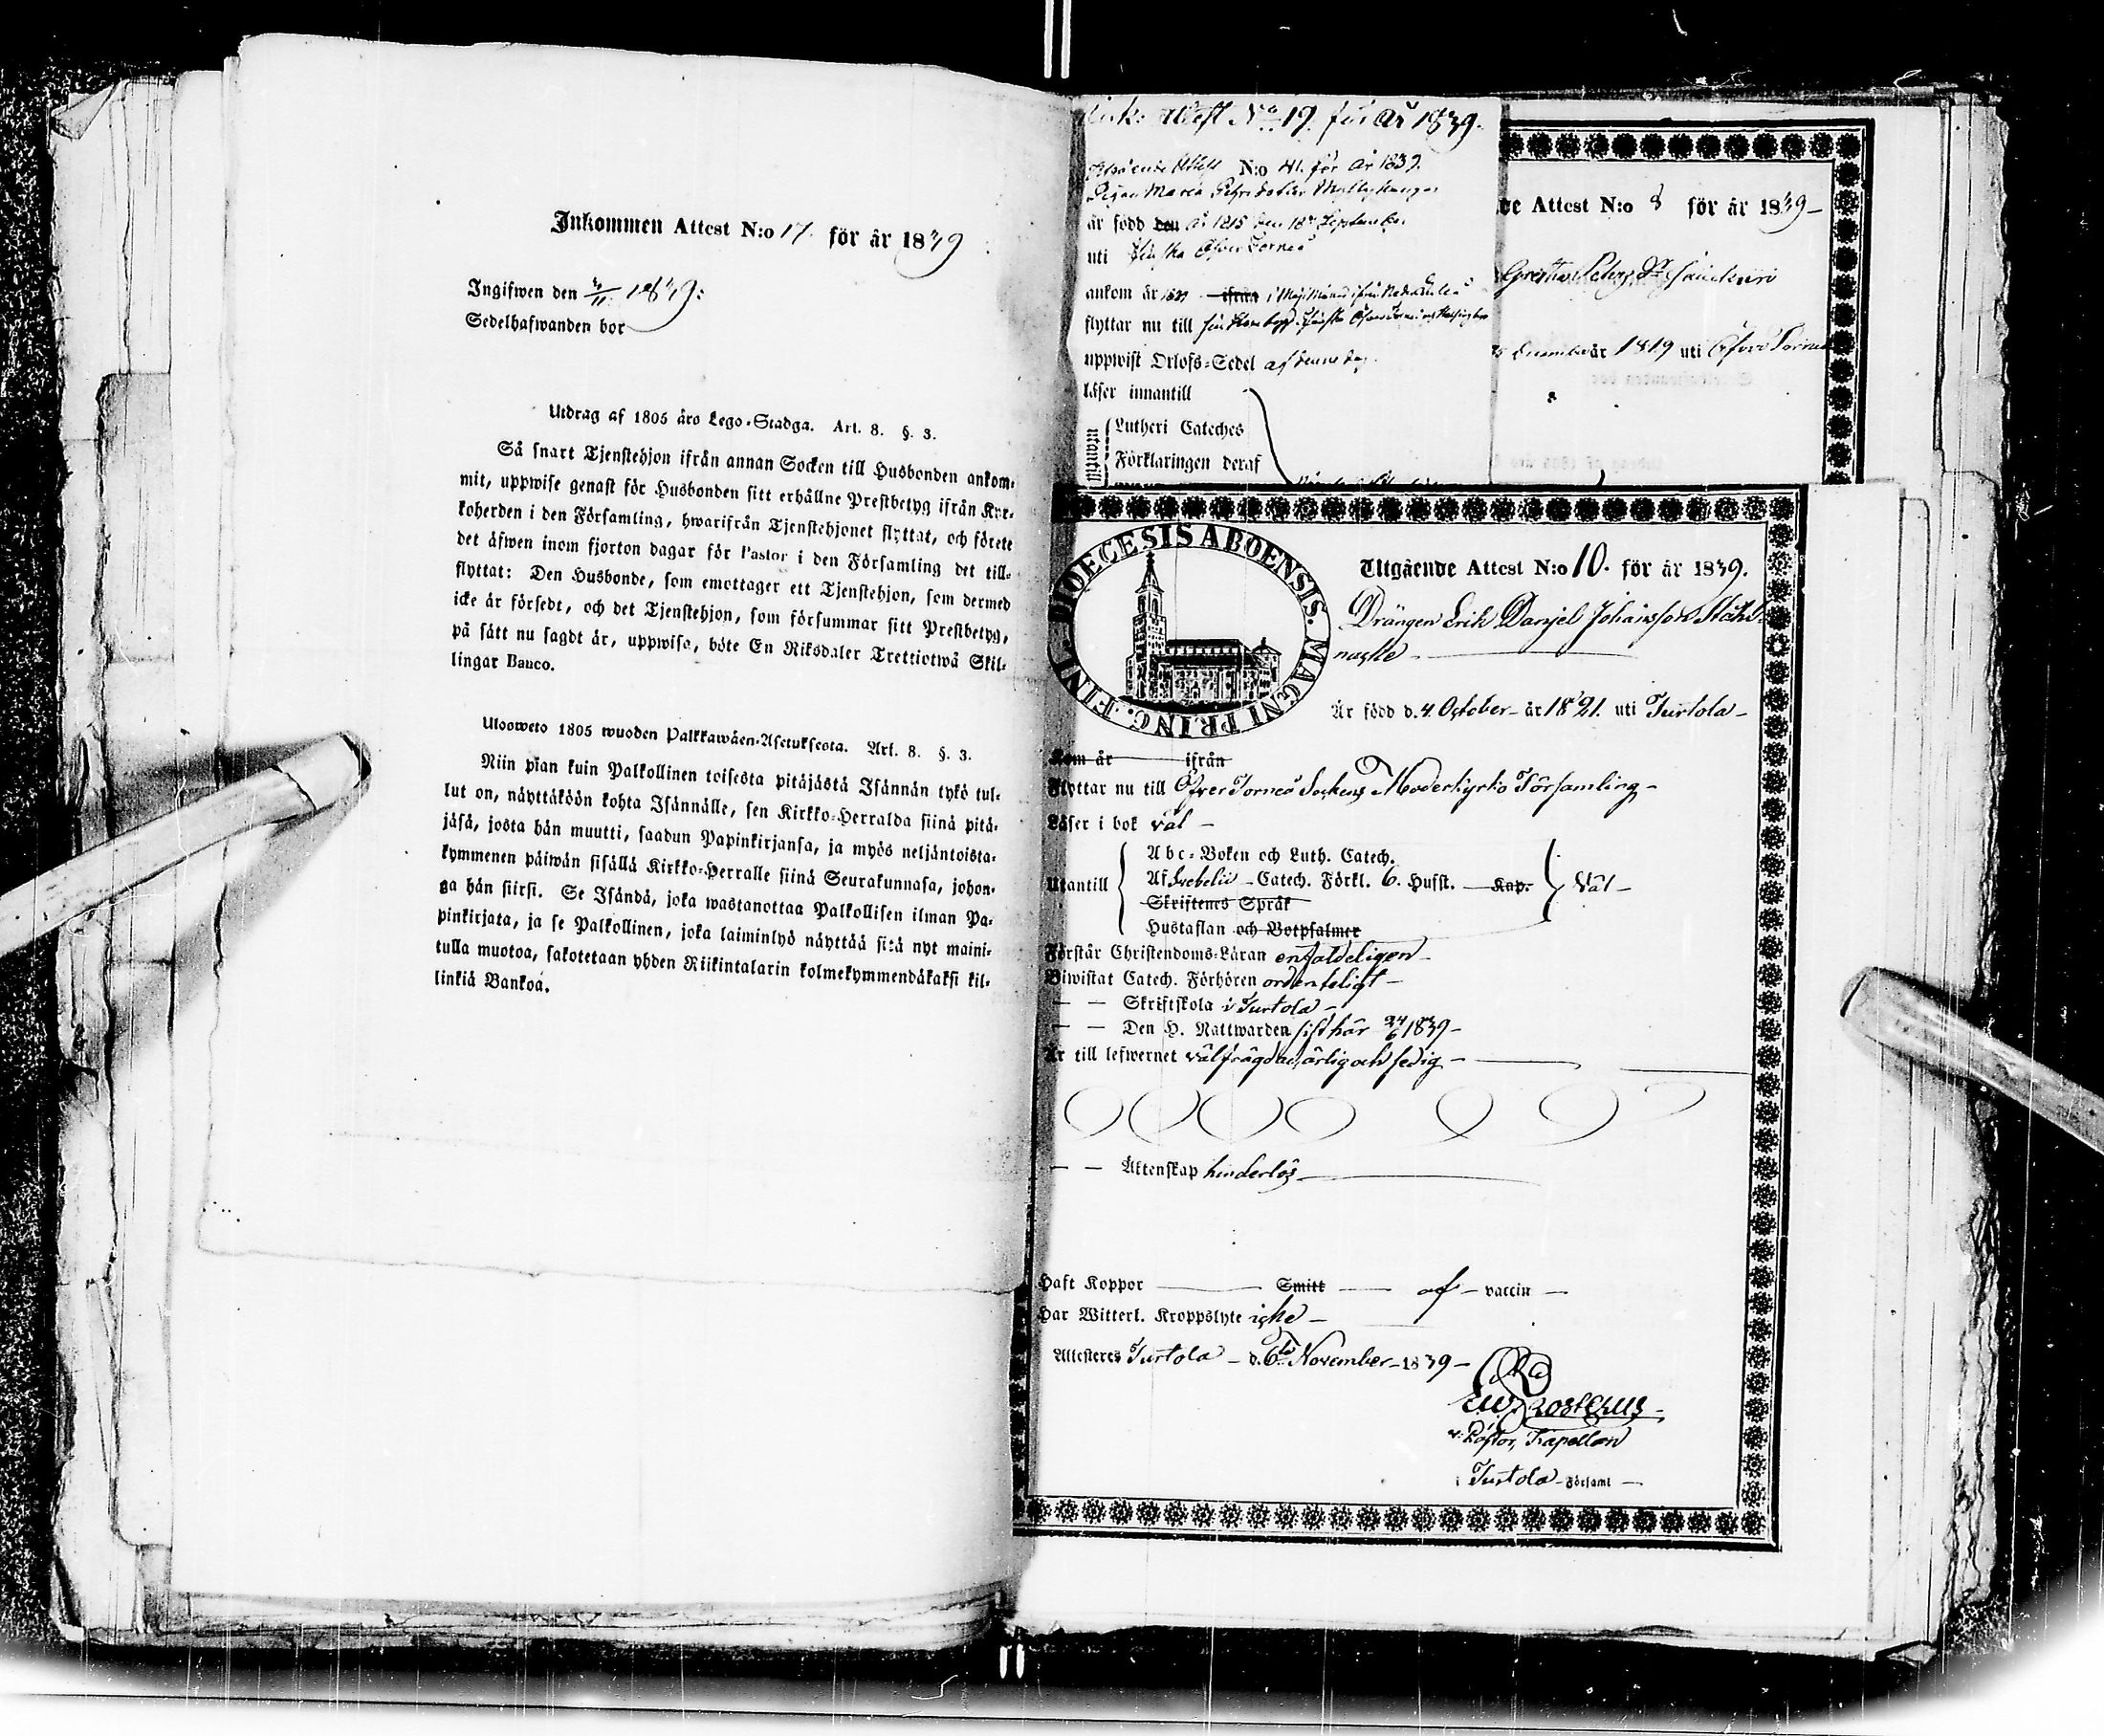 Inkommen Attest N:o 17. för år 1839
Ingifwen den 4/11 1839:
Sedelhafwanden bor
Utdrag af 1805 års Lego-Stadga. Art. 8. §. 3.
Så snart Tjenstehjon ifrån annan Socken till Husbonden ankom-
mit, uppwise genast för Husbonden sitt erhållne Prestbetyg ifrån Kyr-
koherden i den Församling, hwarifrån Tjenstehjonet flyttat, och förete
det äfwen inom fjorton dagar för Pastor i den Församling det till-
flyttat: Den Husbonde, som emottager ett Tjenstehjon, som dermed
icke är försedt, och det Tjenstehjon, som försummar sitt Prestbetyg,
på sätt nu sagdt är, uppwisa, böte En Riksdaler Trettiotwå Skil-
lingar Banco.
Ulosweto 1805 wuoden Palkkawäen-Asetuksesta. Art. 8. §. 3.
Niin pian kuin Palkollinen toisesta pitäjästä Isännän tykö tul-
lut on, näyttäköön kohta Isännälle, sen Kirkko-Herralda siinä pitä-
jäsä, josta hän muutti, saadun Papinkirjansa, ja myös neljäntoista-
kymmenen päiwän sisällä Kirkko-Herralle siinä Seurakunnasa, johon-
ga hän siirsi. Se Isändä, joka wastanottaa Palkollisen ilman Pa-
pinkirjata, ja se Palkollinen, joka laiminlyö näyttää sitä nyt maini-
tulla muotoa, sakotetaan yhden Riikintalarin kolmekymmendäkaksi kil-
linkiä Bankoa.
Attest No 19. för år 1839.
N:o 41. för år 1839.
Pigan Maria
är född den år 1815 den 18de September
uti Finska Öfver Torneå
ankom år ifrån i Maji Månad ifrån
flyttar nu till
uppwist Orlofs-Sedel af denne dag.
läser innantill
utantill
Lutheri Cateches
Förklaringen deraf
de Attest N:o 8 för år 1839-
Gretha Peters Dr
december år 1819 uti Öfver Torneå
DIOECESIS ABOENSIS. MAGNI PRINC. FINL.
Utgående Attest N:o 10. för år 1839.
Drängen Erik Danjel Johansson
Är född d. 4. October - år 1821. uti Turtola -
Kom år ifrån
Flyttar nu till Öfver Torneå Sockens Moderkyrko Församling -
Läser i bok väl -
Utantill
Abc-Boken och Luth. Catech.
Af Svebelii - Catech. Förkl. 6. Hufst. Kap.
Väl -
Skriftenes Språk
Hustaflan och Botpsalmer
Förstår Christendoms-Läran enfaldeligen -
Biwistat Catech. Förhören ordenteligt -
- - Skriftskola i Turtola -
- - Den H. Nattwarden sist här 24/6 1839 -
Är till lefwernet välfrägdad, ärlig och sedig -
- - Äktenskap hinderlös
Haft Koppor Smitt af - vaccin -
Har Witterl. Kroppslyte icke -
Attesteres Turtola - d. 6te November - 1839 -
v. Pastor, Kapellan
i Turtola - Församl -